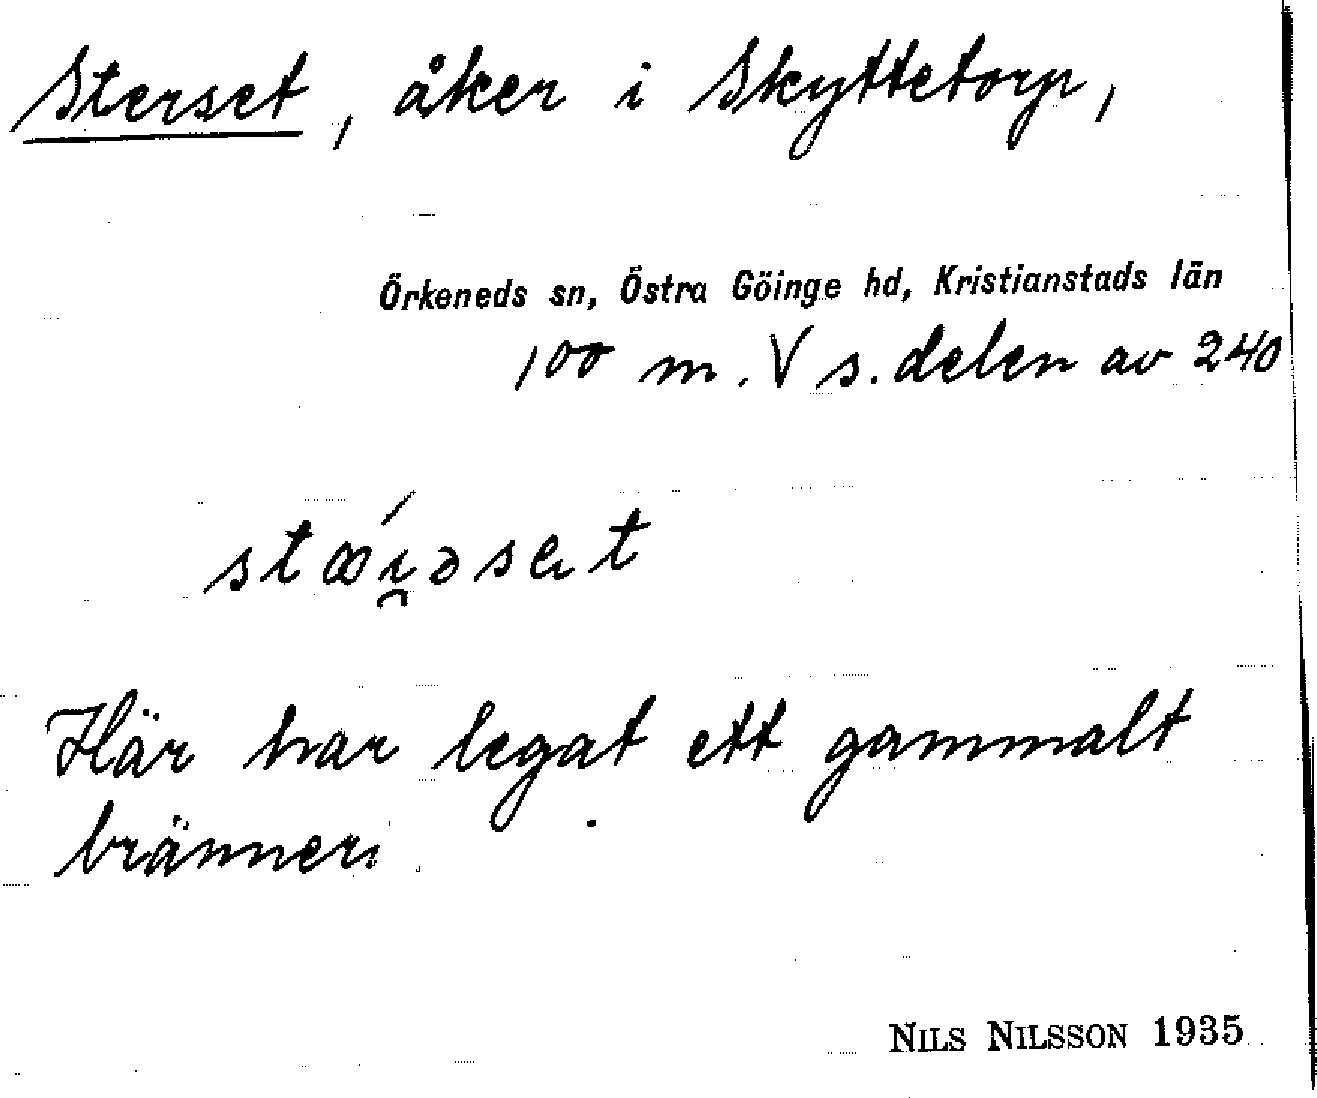 Sterset, åker i Skyttetorp,
Örkeneds sn, Östra Göinge hd, Kristianstads län
100 m. V s. delen av 240
Här har legat ett gammalt
bränneri
NILS NILSSON 1935